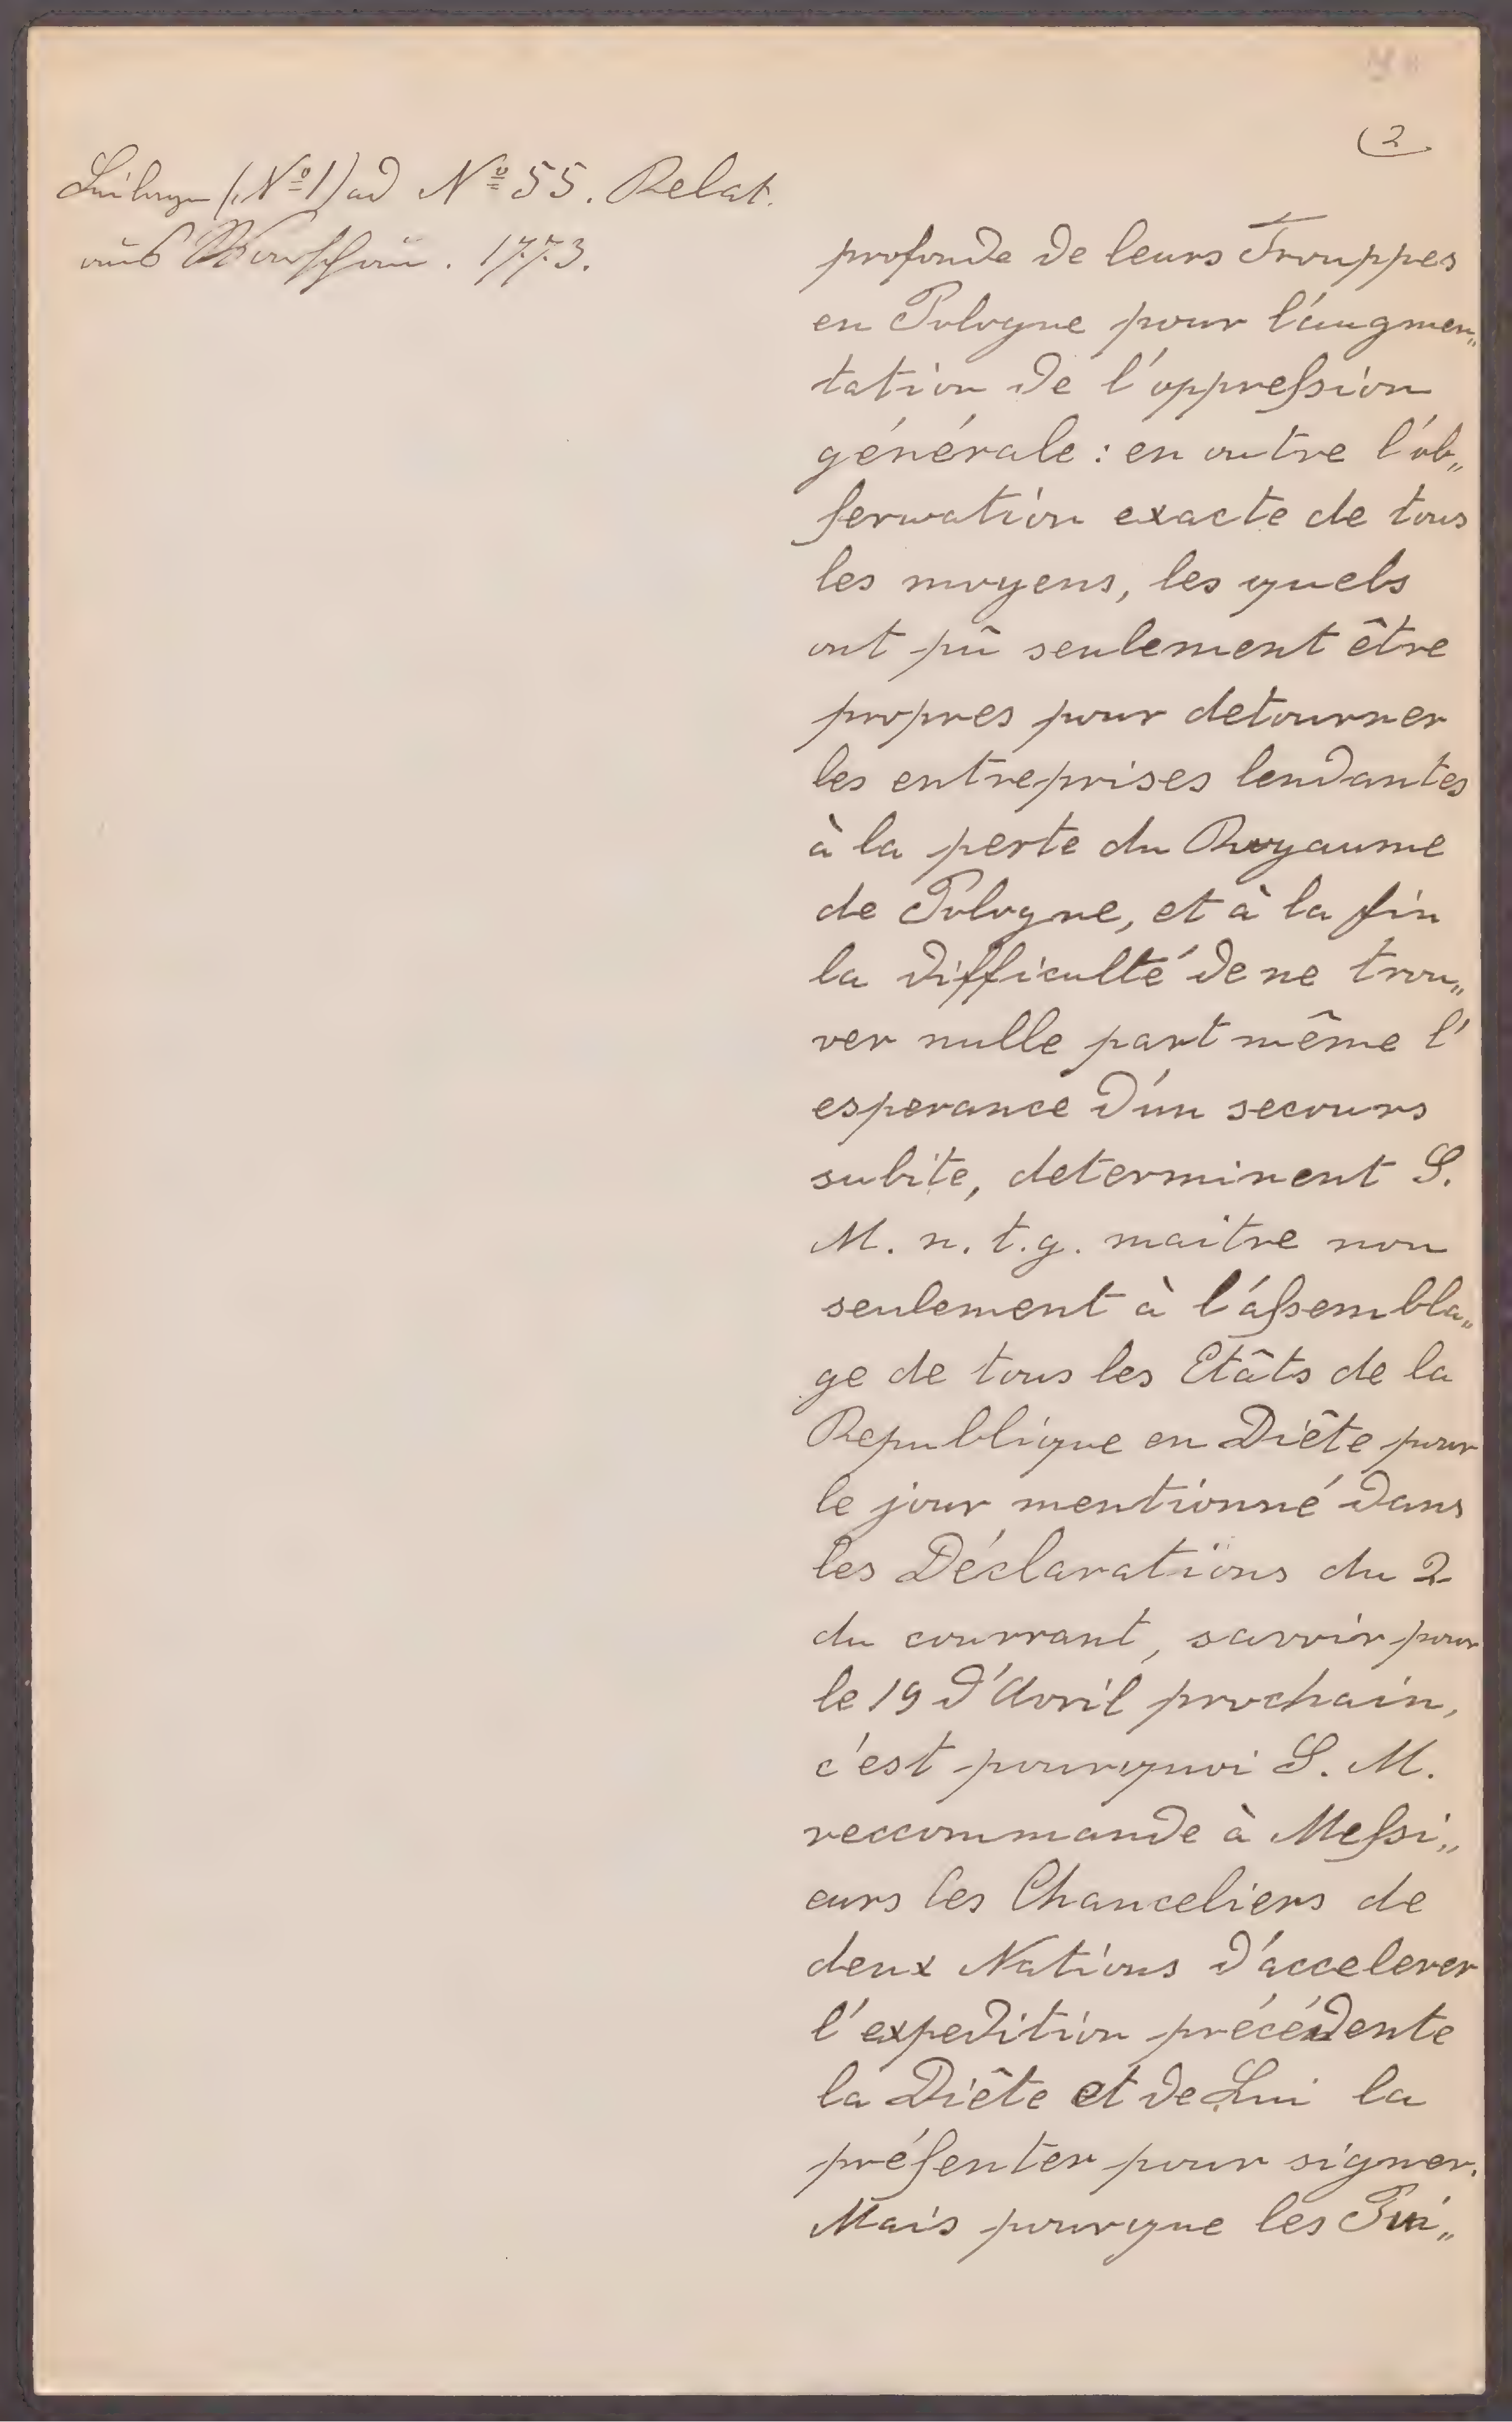 2
Beilage (№ 1) ad № 55. Relat.
aus Warschau. 1773.
profonde de leurs Trouppes
en Pologne pour l'augmen„
tation de l'oppreſsion
générale : en outre l'ob„
ſerwation exacte de tous
les moyens, les quels
ont pû seulement être
propres pour detourner
les entreprises tendantes
à la perte du Royaume
de Pologne, et à la fin
la difficulté de ne trou„
ver nulle part même l'
esperance d'un secours
subite, determinent S.
M. n. t. g. maitre non
seulement à l'aſsembla„
ge de tous les Etâts de la
Republique en Diête pour
le jour mentionné dans
les Déclarations du 2
du courrant, savoir pour
le 19 d'Avril prochain,
c'est pourquoi S. M.
reccommande à Meſsi„
eurs les Chanceliers de
deux Nations d'accelerer
l'expedition précédente
la Diête et de Lui la
préſenter pour signer.
Mais pourque les Pui„